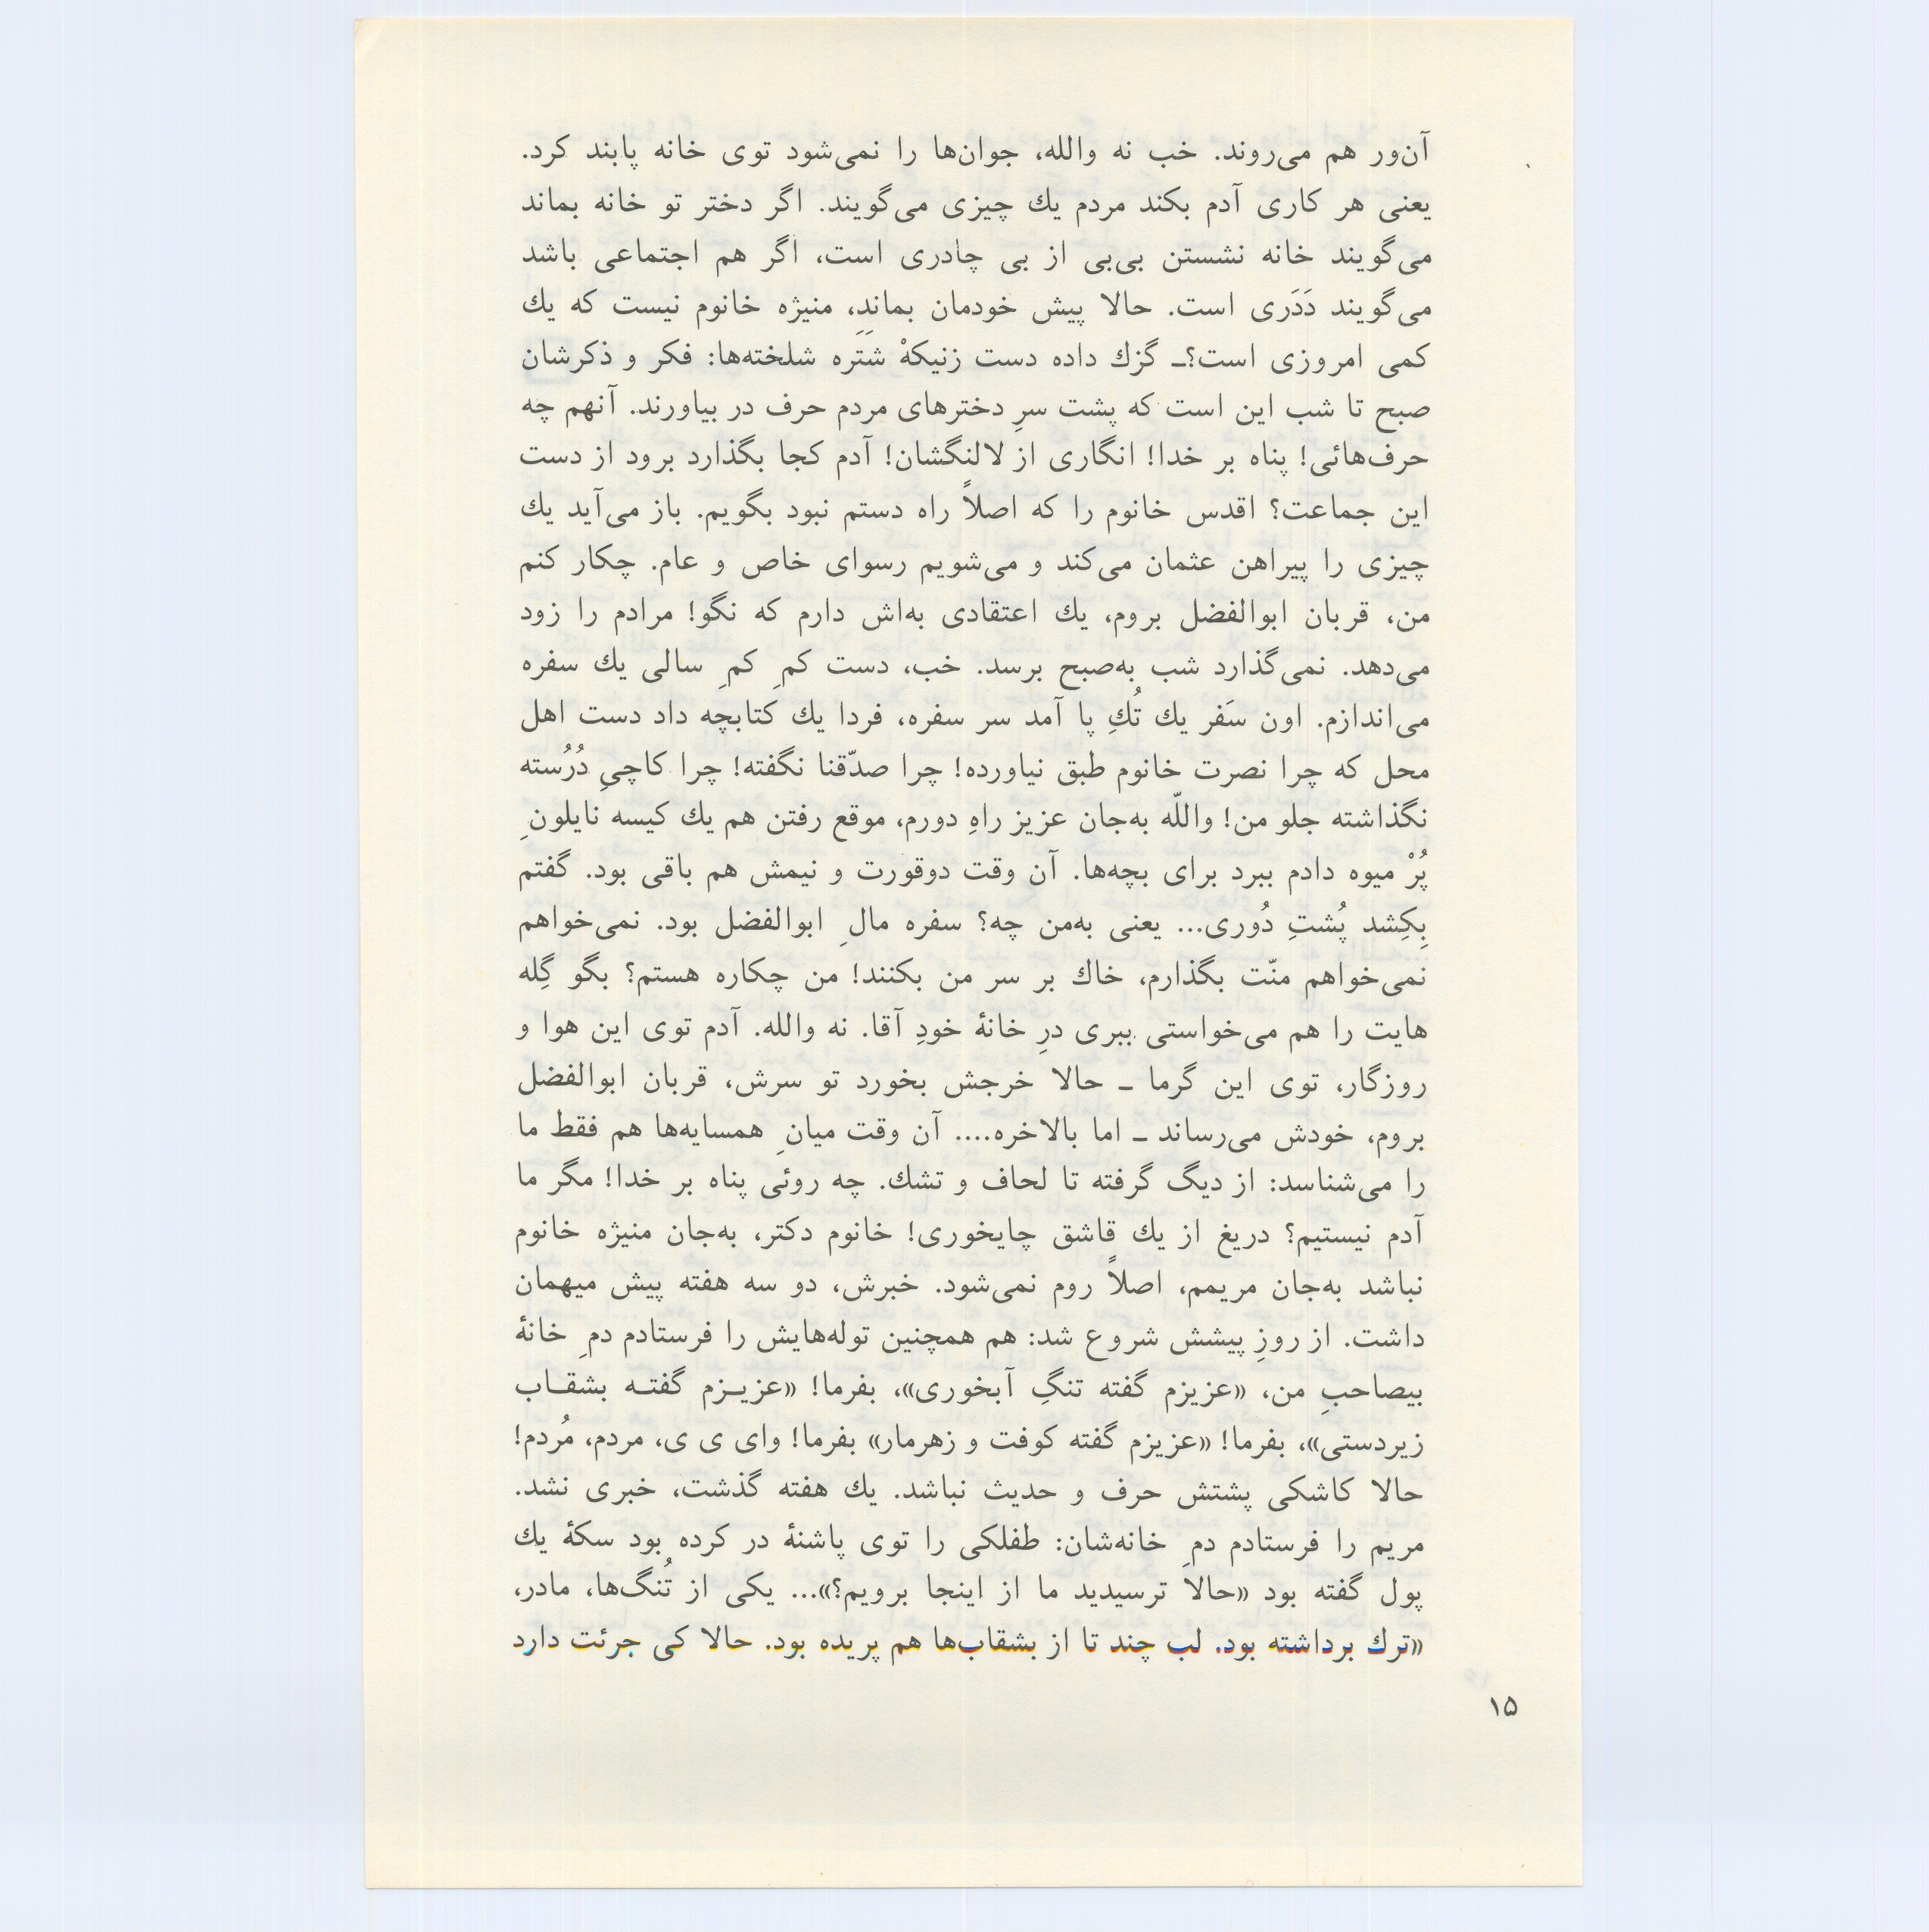 آن‌ور هم می‌روند. خب نه والله، جوان‌ها را نمی‌شود توی خانه پابند کرد.
یعنی هر کاری آدم بکند مردم یك چیزی می‌گویند. اگر دختر تو خانه بماند
می‌گویند خانه نشستن بی‌بی از بی چادری است، اگر هم اجتماعی باشد
می‌گویند دَدَری است. حالا پیش خودمان بماند، منیژه خانوم نیست که یك
کمی امروزی است؟ـ گزك داده دست زنیکهْ شَتَره شلخته‌ها: فکر و ذکرشان
صبح تا شب این است که پشت سرِ دخترهای مردم حرف در بیاورند. آنهم چه
حرف‌هائی! پناه بر خدا! انگاری از لالنگشان! آدم کجا بگذارد برود از دست
این جماعت؟ اقدس خانوم را که اصلاً راه دستم نبود بگویم. باز می‌آید یك
چیزی را پیراهن عثمان می‌کند و می‌شویم رسوای خاص و عام. چکار کنم
من، قربان ابوالفضل بروم، یك اعتقادی به‌اش دارم که نگو! مرادم را زود
می‌دهد. نمی‌گذارد شب به‌صبح برسد. خب، دست کمِ کمِ سالی یك سفره
می‌اندازم. اون سَفر یك تُكِ پا آمد سر سفره، فردا یك کتابچه داد دست اهل
محل که چرا نصرت خانوم طبق نیاورده! چرا صدّقنا نگفته! چرا کاچیِ دُرُسته
نگذاشته جلو من! واللّه به‌جان عزیز راهِ دورم، موقع رفتن هم یك کیسه نایلونِ
پُرْ میوه دادم ببرد برای بچه‌ها. آن وقت دوقورت و نیمش هم باقی بود. گفتم
بِکِشد پُشتِ دُوری... یعنی به‌من چه؟ سفره مالِ ابوالفضل بود. نمی‌خواهم
نمی‌خواهم منّت بگذارم، خاك بر سر من بکنند! من چکاره هستم؟ بگو گِله
هایت را هم می‌خواستی ببری درِ خانهٔ خودِ آقا. نه والله. آدم توی این هوا و
روزگار، توی این گرما ـ حالا خرجش بخورد تو سرش، قربان ابوالفضل
بروم، خودش می‌رساند ـ اما بالاخره.... آن وقت میانِ همسایه‌ها هم فقط ما
را می‌شناسد: از دیگ گرفته تا لحاف و تشك. چه روئی پناه بر خدا! مگر ما
آدم نیستیم؟ دریغ از یك قاشق چایخوری! خانوم دکتر، به‌جان منیژه خانوم
نباشد به‌جان مریمم، اصلاً روم نمی‌شود. خبرش، دو سه هفته پیش میهمان
داشت. از روزِ پیشش شروع شد: هم همچنین توله‌هایش را فرستادم دمِ خانهٔ
بیصاحبِ من، «عزیزم گفته تنگِ آبخوری»، بفرما! «عزیـزم گفتـه بشقـاب
زیردستی»، بفرما! «عزیزم گفته کوفت و زهرمار» بفرما! وای ی ی، مردم، مُردم!
حالا کاشکی پشتش حرف و حدیث نباشد. یك هفته گذشت، خبری نشد.
مریم را فرستادم دمِ خانه‌شان: طفلکی را توی پاشنهٔ در کرده بود سکهٔ یك
پول گفته بود «حالا ترسیدید ما از اینجا برویم؟»... یکی از تُنگ‌ها، مادر،
«ترك برداشته بود. لب چند تا از بشقاب‌ها هم پریده بود. حالا کی جرئت دارد
۱۵